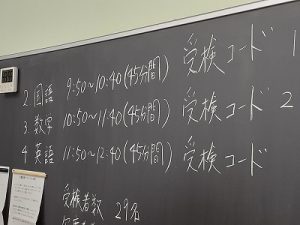 2. 国語 9:50～10:40(45分間) 受検コード 1
3. 数学 10:50～11:40(45分間) 受検コード 2
4. 英語 11:50～12:40(45分間) 受検コード
受検者数 29名